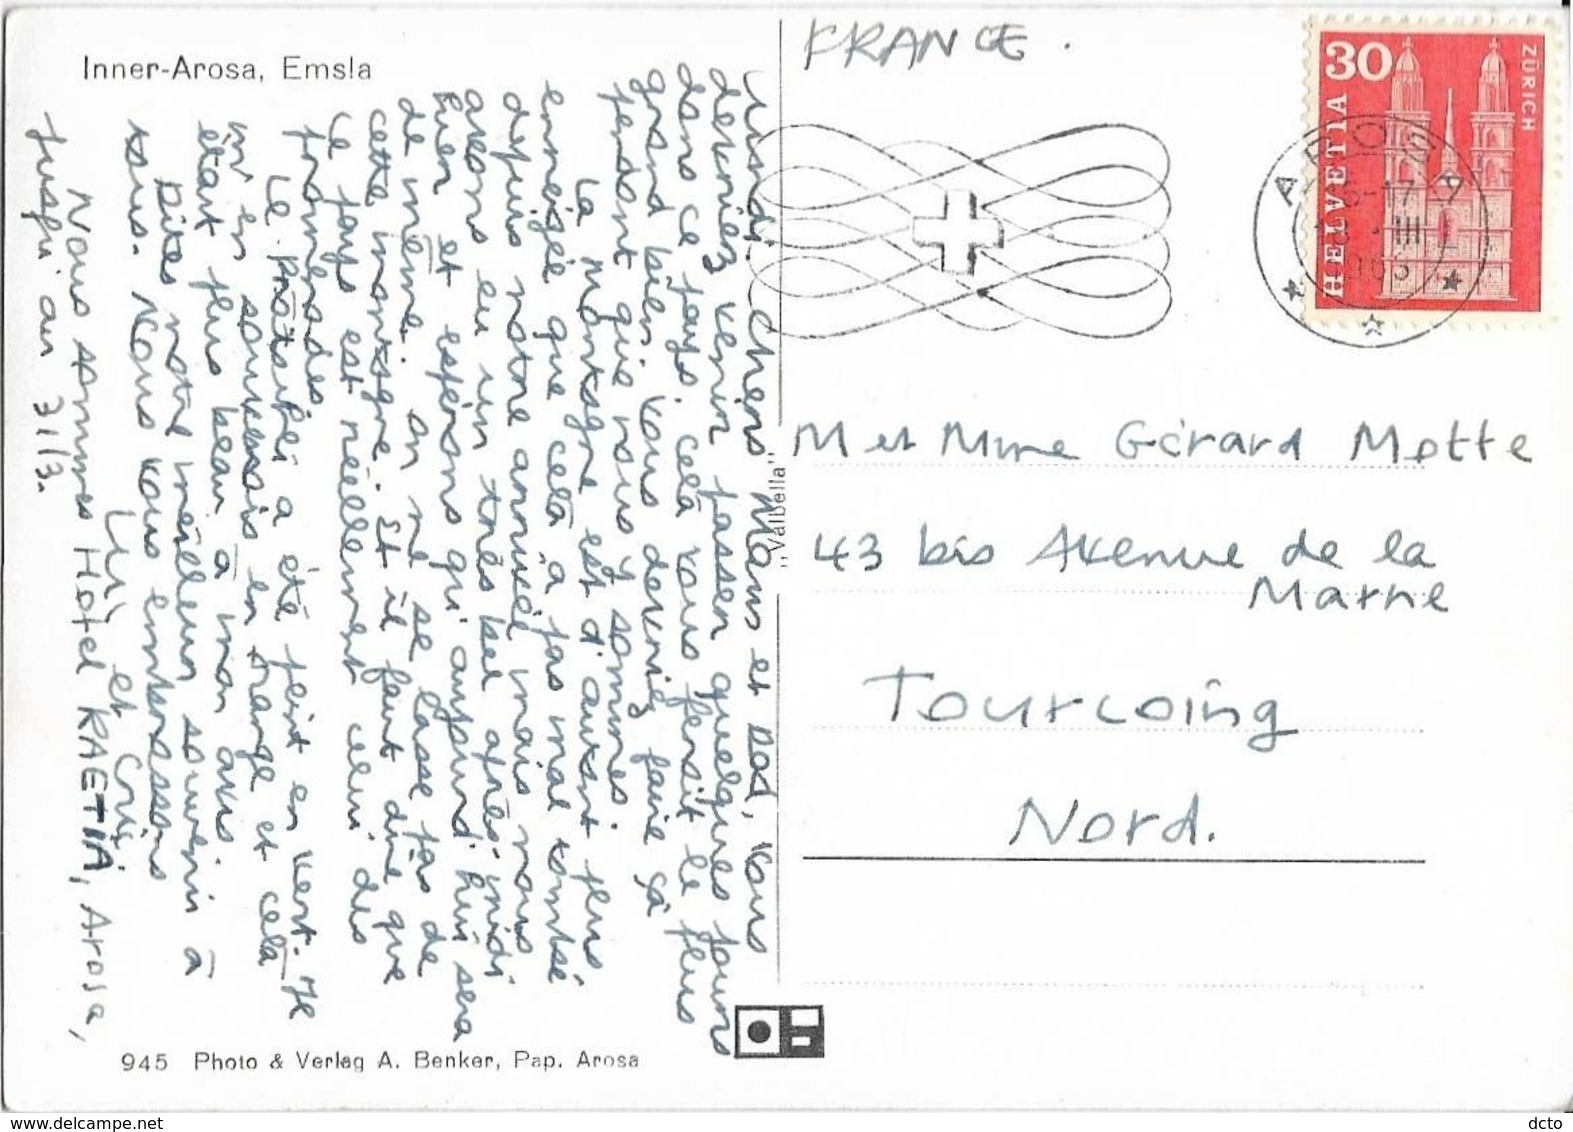 Inner-Arosa, Emsla
FRANCE.
30
ZÜRICH
HELVETIA
AROSA
III
Lundi. Chers Mams et Dad, vous
devriez venir passer quelques jours
dans ce pays. Cela vous ferait le plus
grand bien. Vous devriez faire ça
pendant que nous y sommes.
La montagne est d'autant plus
enneigée que cela a pas mal tombé
depuis notre arrivée mais nous
avons eu un très bel après-midi
hier et espérons qu'aujourd'hui sera
de même. On ne se lasse pas de
cette montagne. Et il faut dire que
ce pays est réellement celui des
promenades.
Le Prätschli a été peint en vert. Je
m'en souvenais en orange et cela
était plus beau à mon avis.
Dites notre meilleur souvenir à
tous. Nous vous embrassons
Lui et Cri.
Nous sommes Hotel RAETIA, Arosa,
jusqu'au 31/3.
"Valbella"
M et Mme Gérard Motte
43 bis Avenue de la
Marne
Tourcoing
Nord.
945 Photo & Verlag A. Benker, Pap. Arosa
www.delcampe.net
dcto